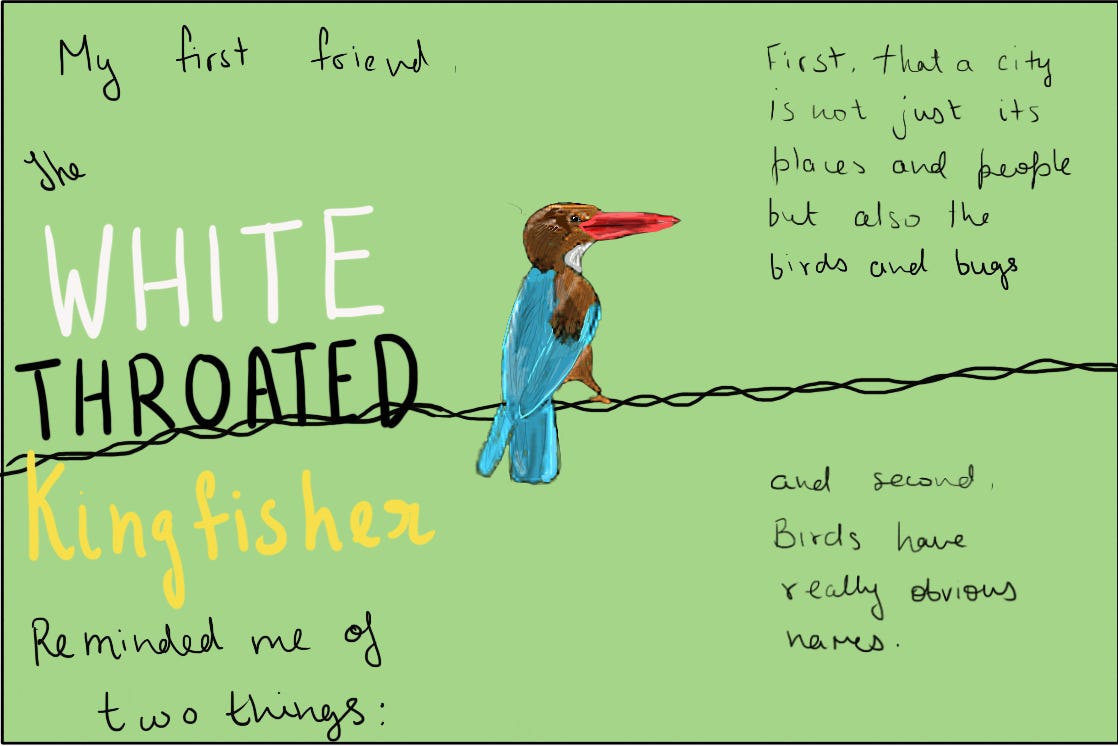 My first friend,
The
WHITE
THROATED
Kingfisher
Reminded me of
two things:
First, that a city
is not just its
places and people
but also the
birds and bugs
and second,
Birds have
really obvious
names.